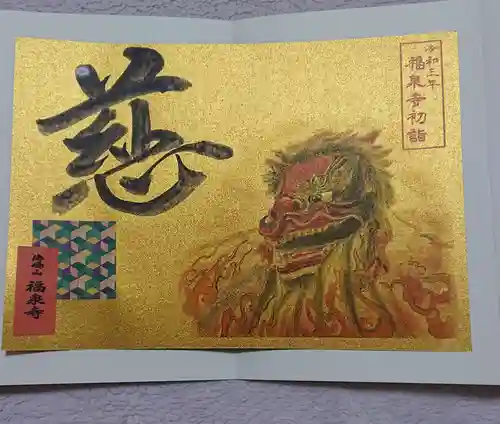 令和三年
福泉寺初詣
慈
福泉寺